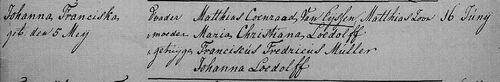 Johanna, Franciska, Vader Matthias Coenraad, Van Eyssen, Matthias Zoon 16 Juny
geb. den 5 Mey moeder Maria, Christiana, Loedolff
getuyge, Franciscus Fredricus Muller
Johanna Loedolff